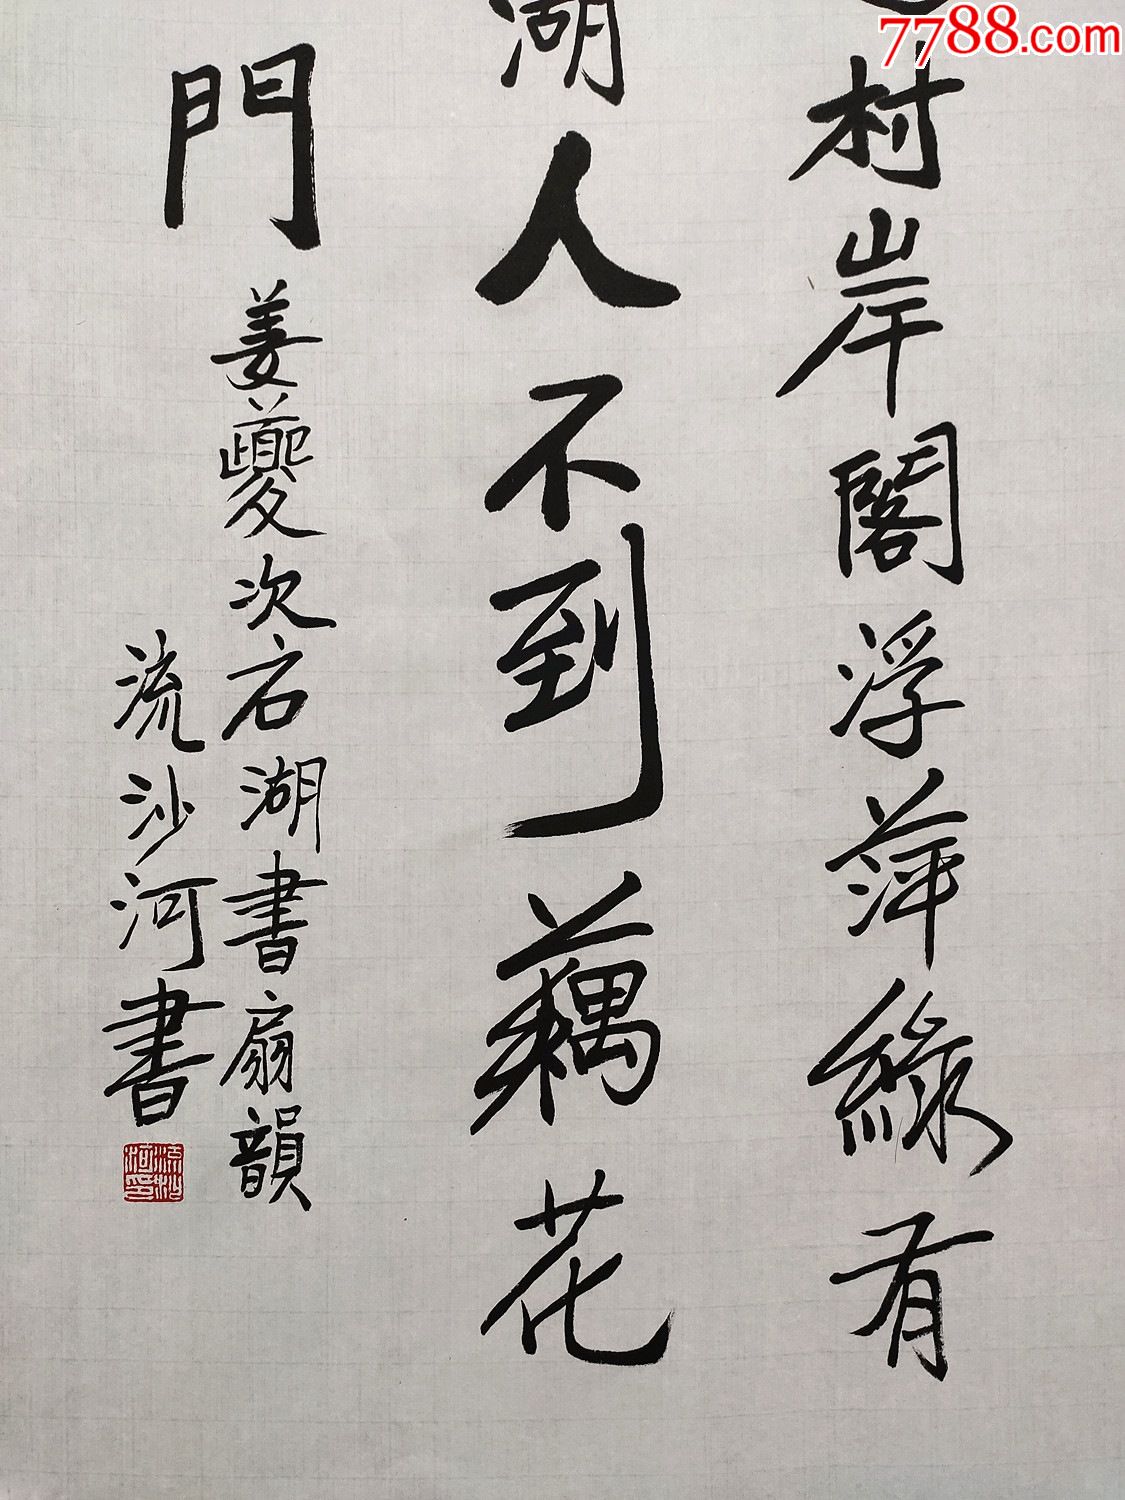 7788.com
村岸閣浮萍綠有
湖人不到藕花
門
姜夔次石湖書扇韻
流沙河書